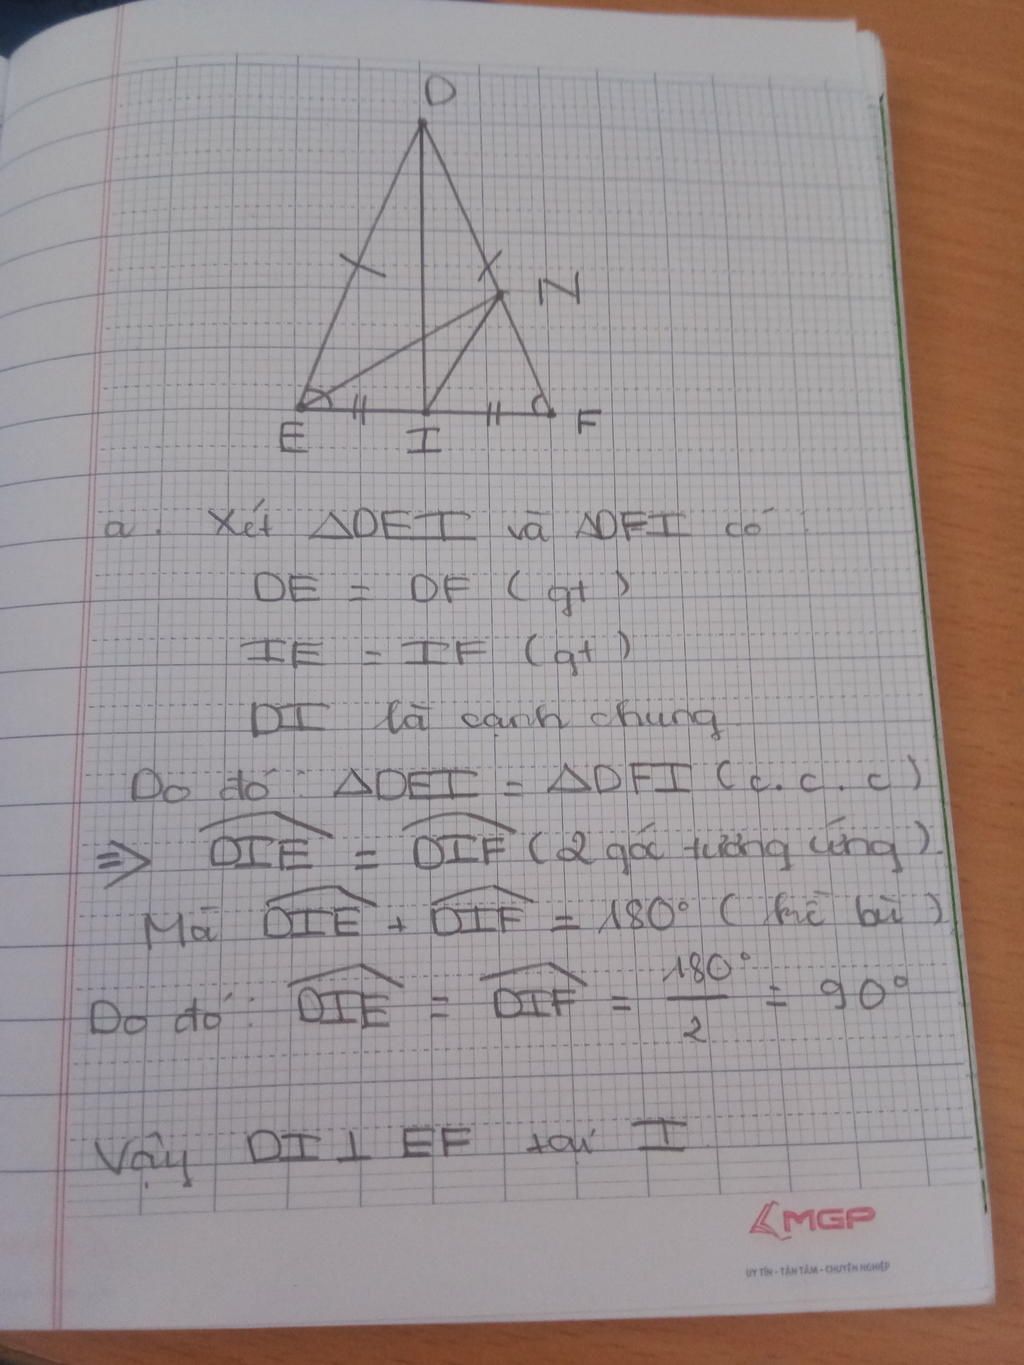 D
N
E I F
a. Xét ΔDEI và ΔDFI có:
DE = DF (gt)
IE = IF (gt)
DI là cạnh chung
Do đó: ΔDEI = ΔDFI (c.c.c)
=> DIE = DIF (2 góc tương ứng).
Mà DIE + DIF = 180° (kề bù)
Do đó: DIE = DIF = 180°/2 = 90°
Vậy DI ⊥ EF tại I
MGP
UY TÍN - TẬN TÂM - CHUYÊN NGHIỆP